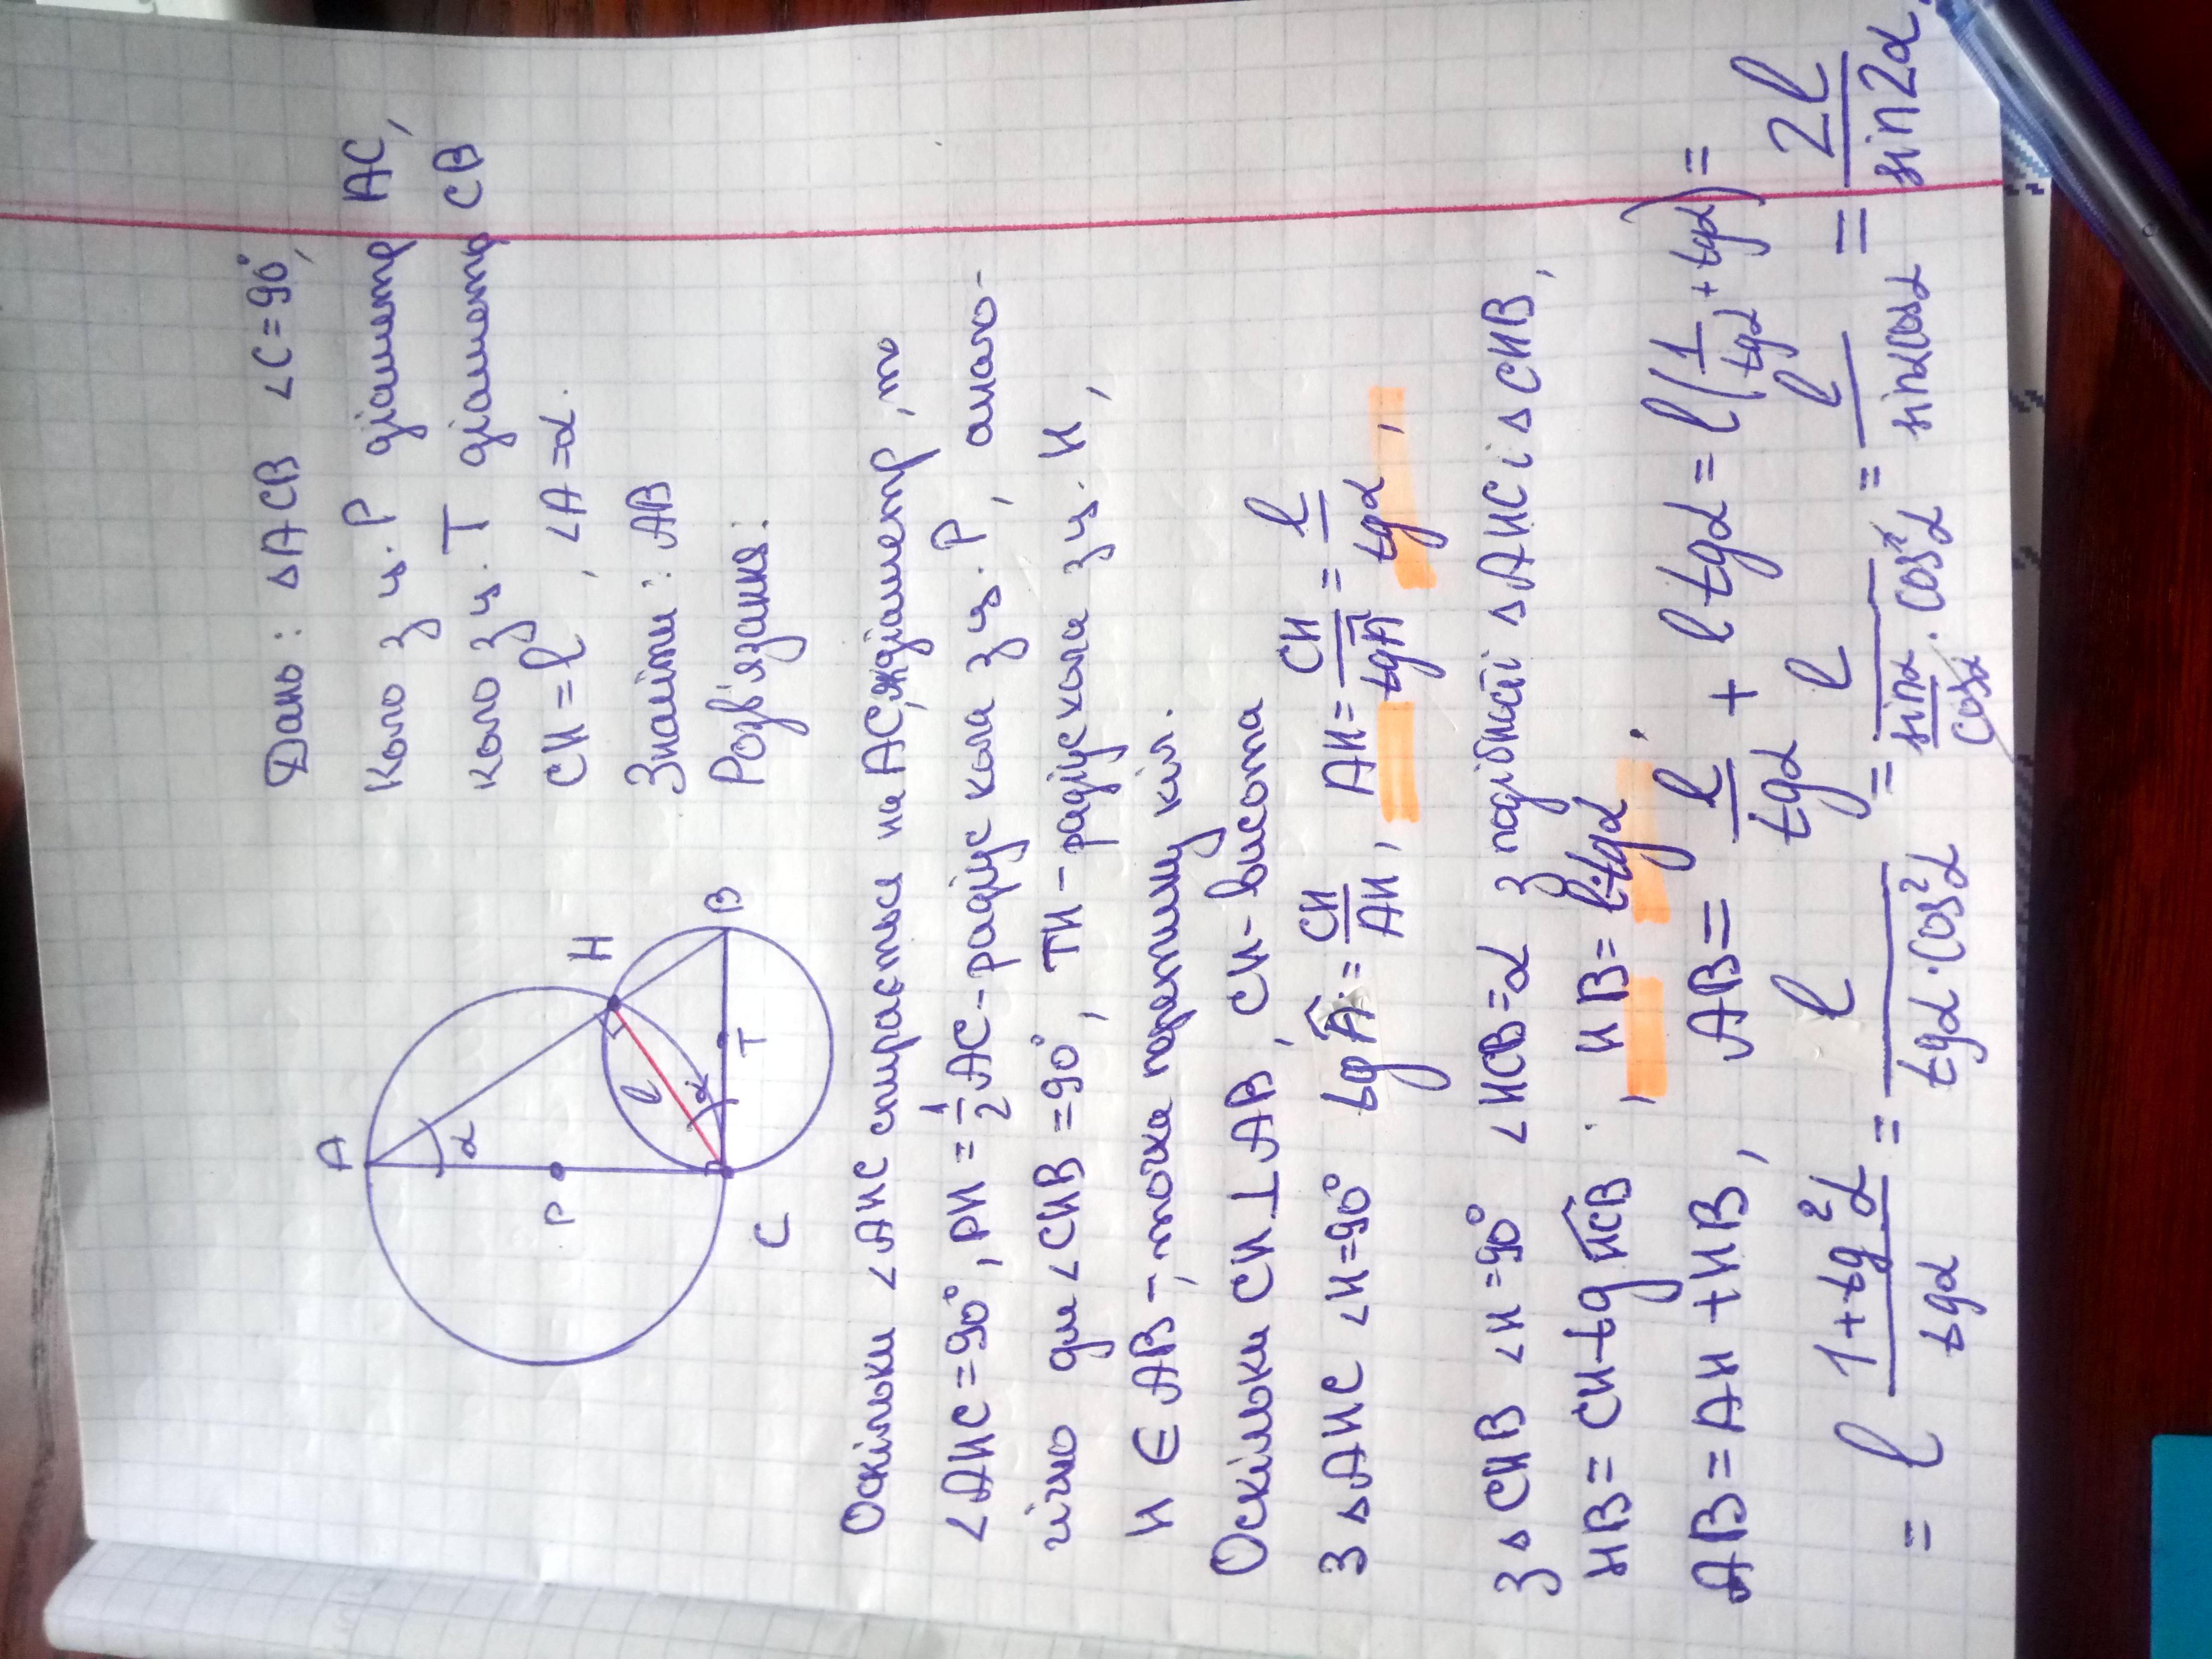 A
H
α
P
l
α
C
T
B
Дано: △ACB ∠C=90°,
Коло з ц. P діаметр AC,
коло з ц. T діаметр CB
CH = l, ∠A=α.
Знайти: AB
Розв'язання:
Оскільки ∠AHC спирається на AC, як діаметр, то
∠AHC=90°, PH=1/2 AC-радіус кола з ц. P, анало-
гічно для ∠CHB=90°, TH-радіус кола з ц. H,
H ∈ AB -, точка перетину кіл.
Оскільки CH⊥AB, CH-висота
З △AHC ∠H=90° tgA = CH/AH, AH = CH/tgA = l/tgα,
З △CHB ∠H=90° ∠HCB=α з подібності △AHC і △CHB,
HB = CH·tg HCB, HB = l·tgα,
AB=AH+HB, AB = l/tgα + l tgα = l(1/tgα + tgα) =
= l (1+tg²α)/tgα = l/(tgα·cos²α) = l/(sinα/cosα · cos²α) = l/(sinα cosα) = 2l/sin2α.